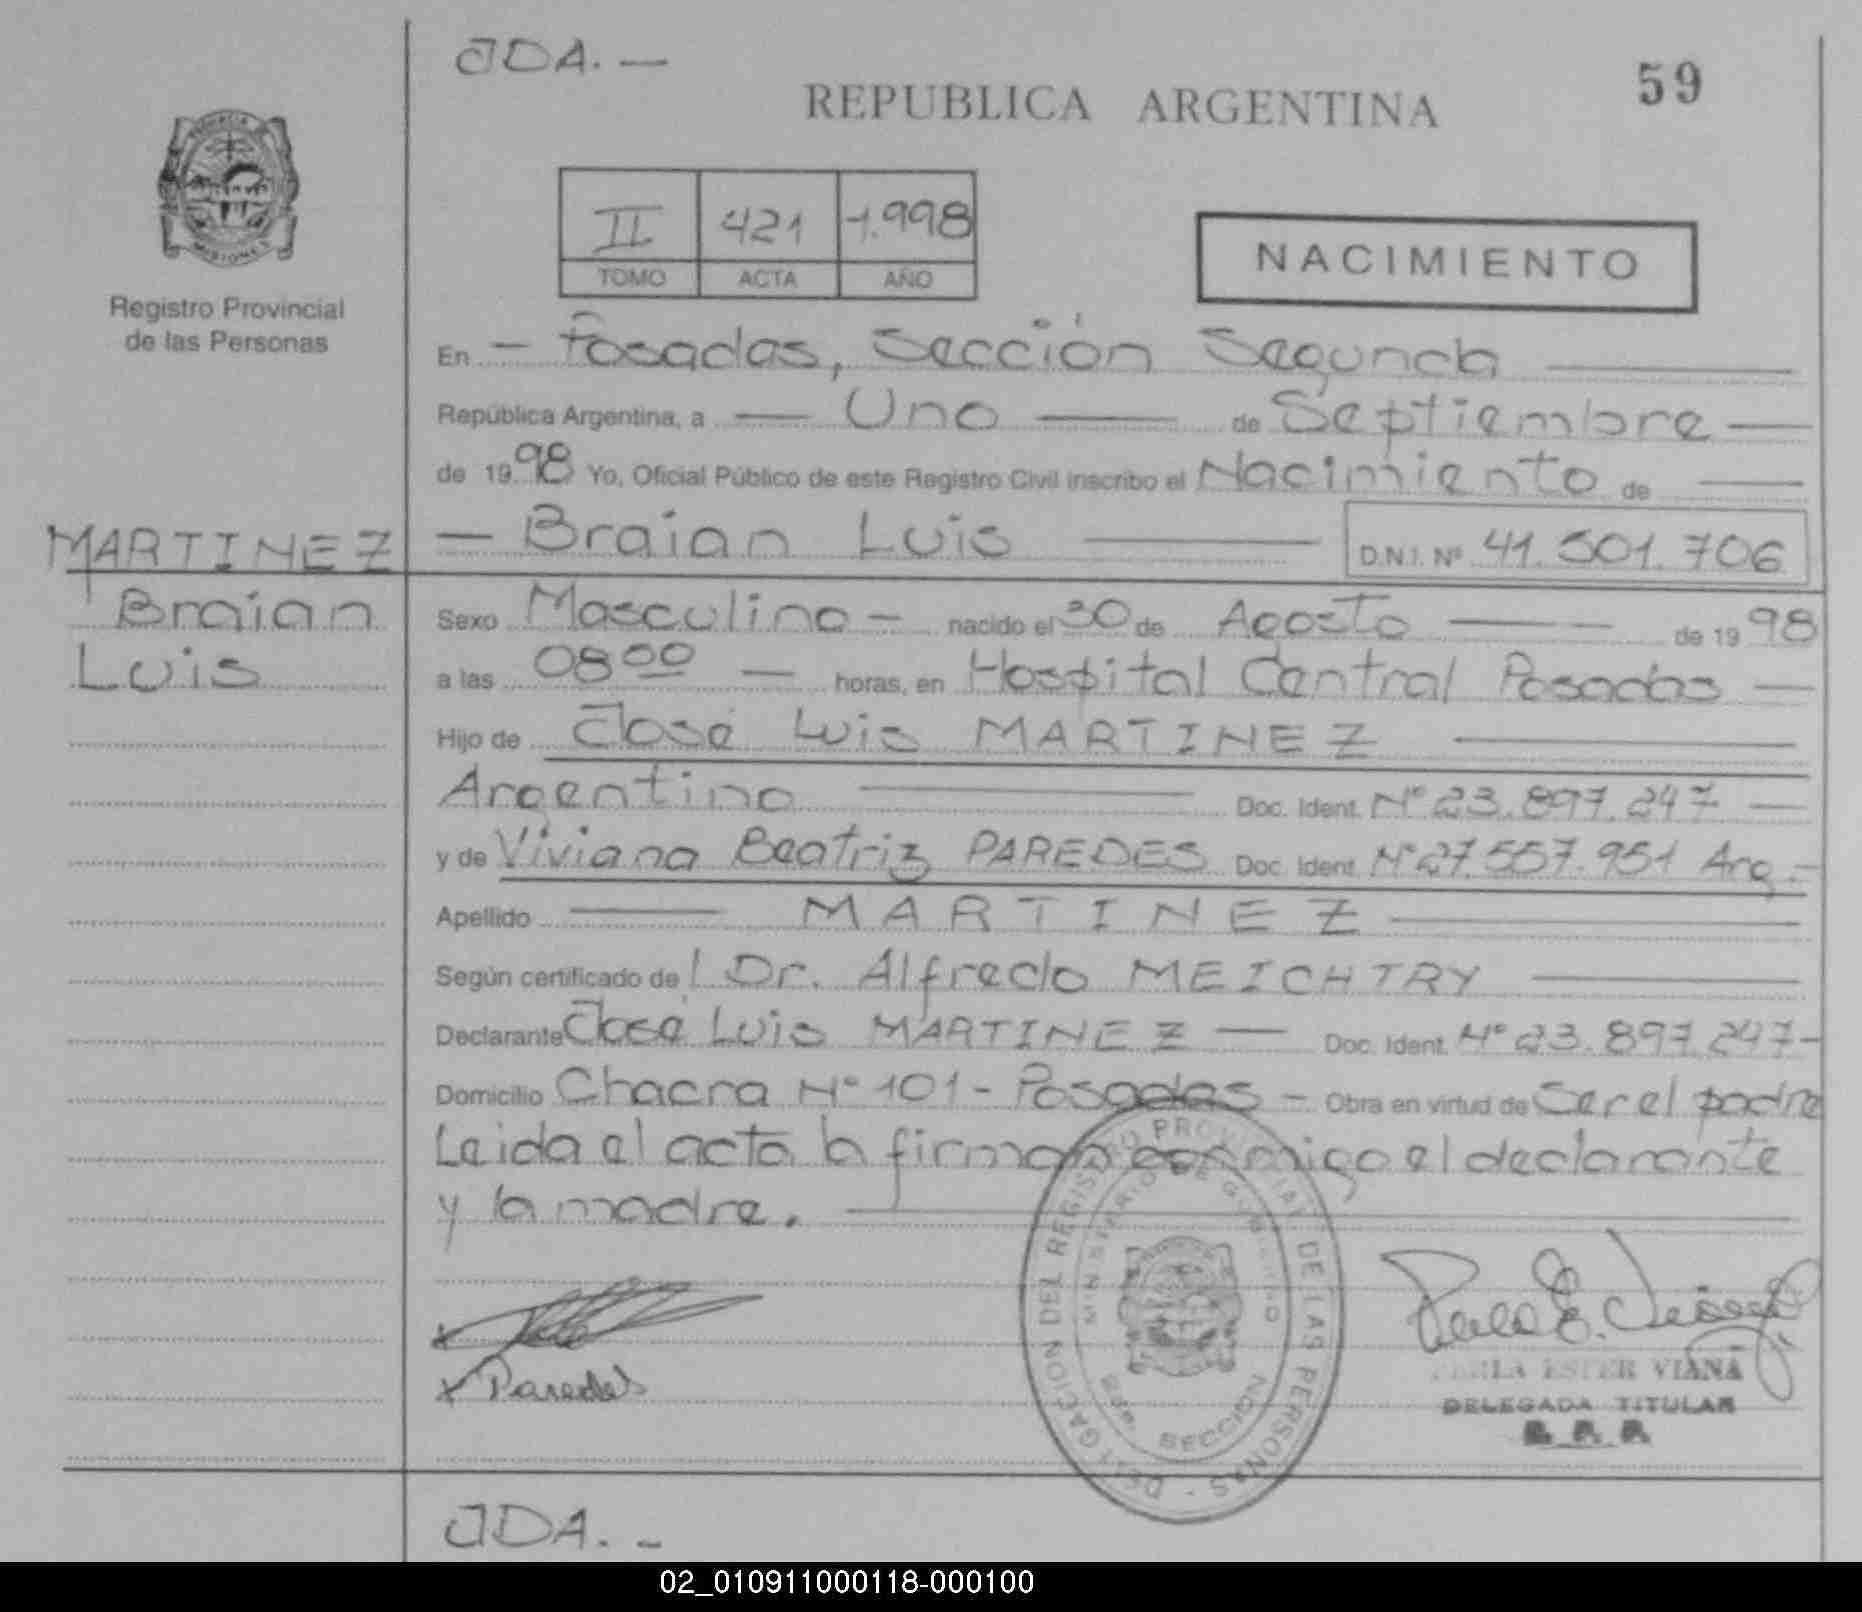 JDA. —
59
REPUBLICA ARGENTINA
Registro Provincial
de las Personas
II 421 1.998
TOMO ACTA AÑO
NACIMIENTO
En - Posadas, Sección Segunda
República Argentina, a — Uno — de Septiembre —
de 1998 Yo, Oficial Público de este Registro Civil inscribo el Nacimiento de —
— Braian Luis — D.N.I. Nº 41.501.706
MARTINEZ
Braian
Luis
Sexo Masculino — nacido el 30 de Agosto — — de 1998
a las 08 00 — horas, en Hospital Central Posadas —
Hijo de José Luis MARTINEZ —
Argentino — Doc. Ident. Nº 23.897.247 —
y de Viviana Beatriz PAREDES Doc. Ident. Nº 27.557.951 Arg.-
Apellido — MARTINEZ —
Según certificado de l Dr. Alfredo MEICHTRY —
Declarante José Luis MARTINEZ — Doc. Ident. Nº 23.897.247-
Domicilio Chacra Nº 101 - Posadas - Obra en virtud de Ser el padre
Leida el acta la firman conmigo el declarante
y la madre. —
x
x Paredes
DELEGACION DEL REGISTRO PROVINCIAL DE LAS PERSONAS
MINISTERIO DE GOBIERNO
2da. SECCION
PERLA ESTER VIANA
DELEGADA TITULAR
R. P. P.
JDA. -
02_010911000118-000100